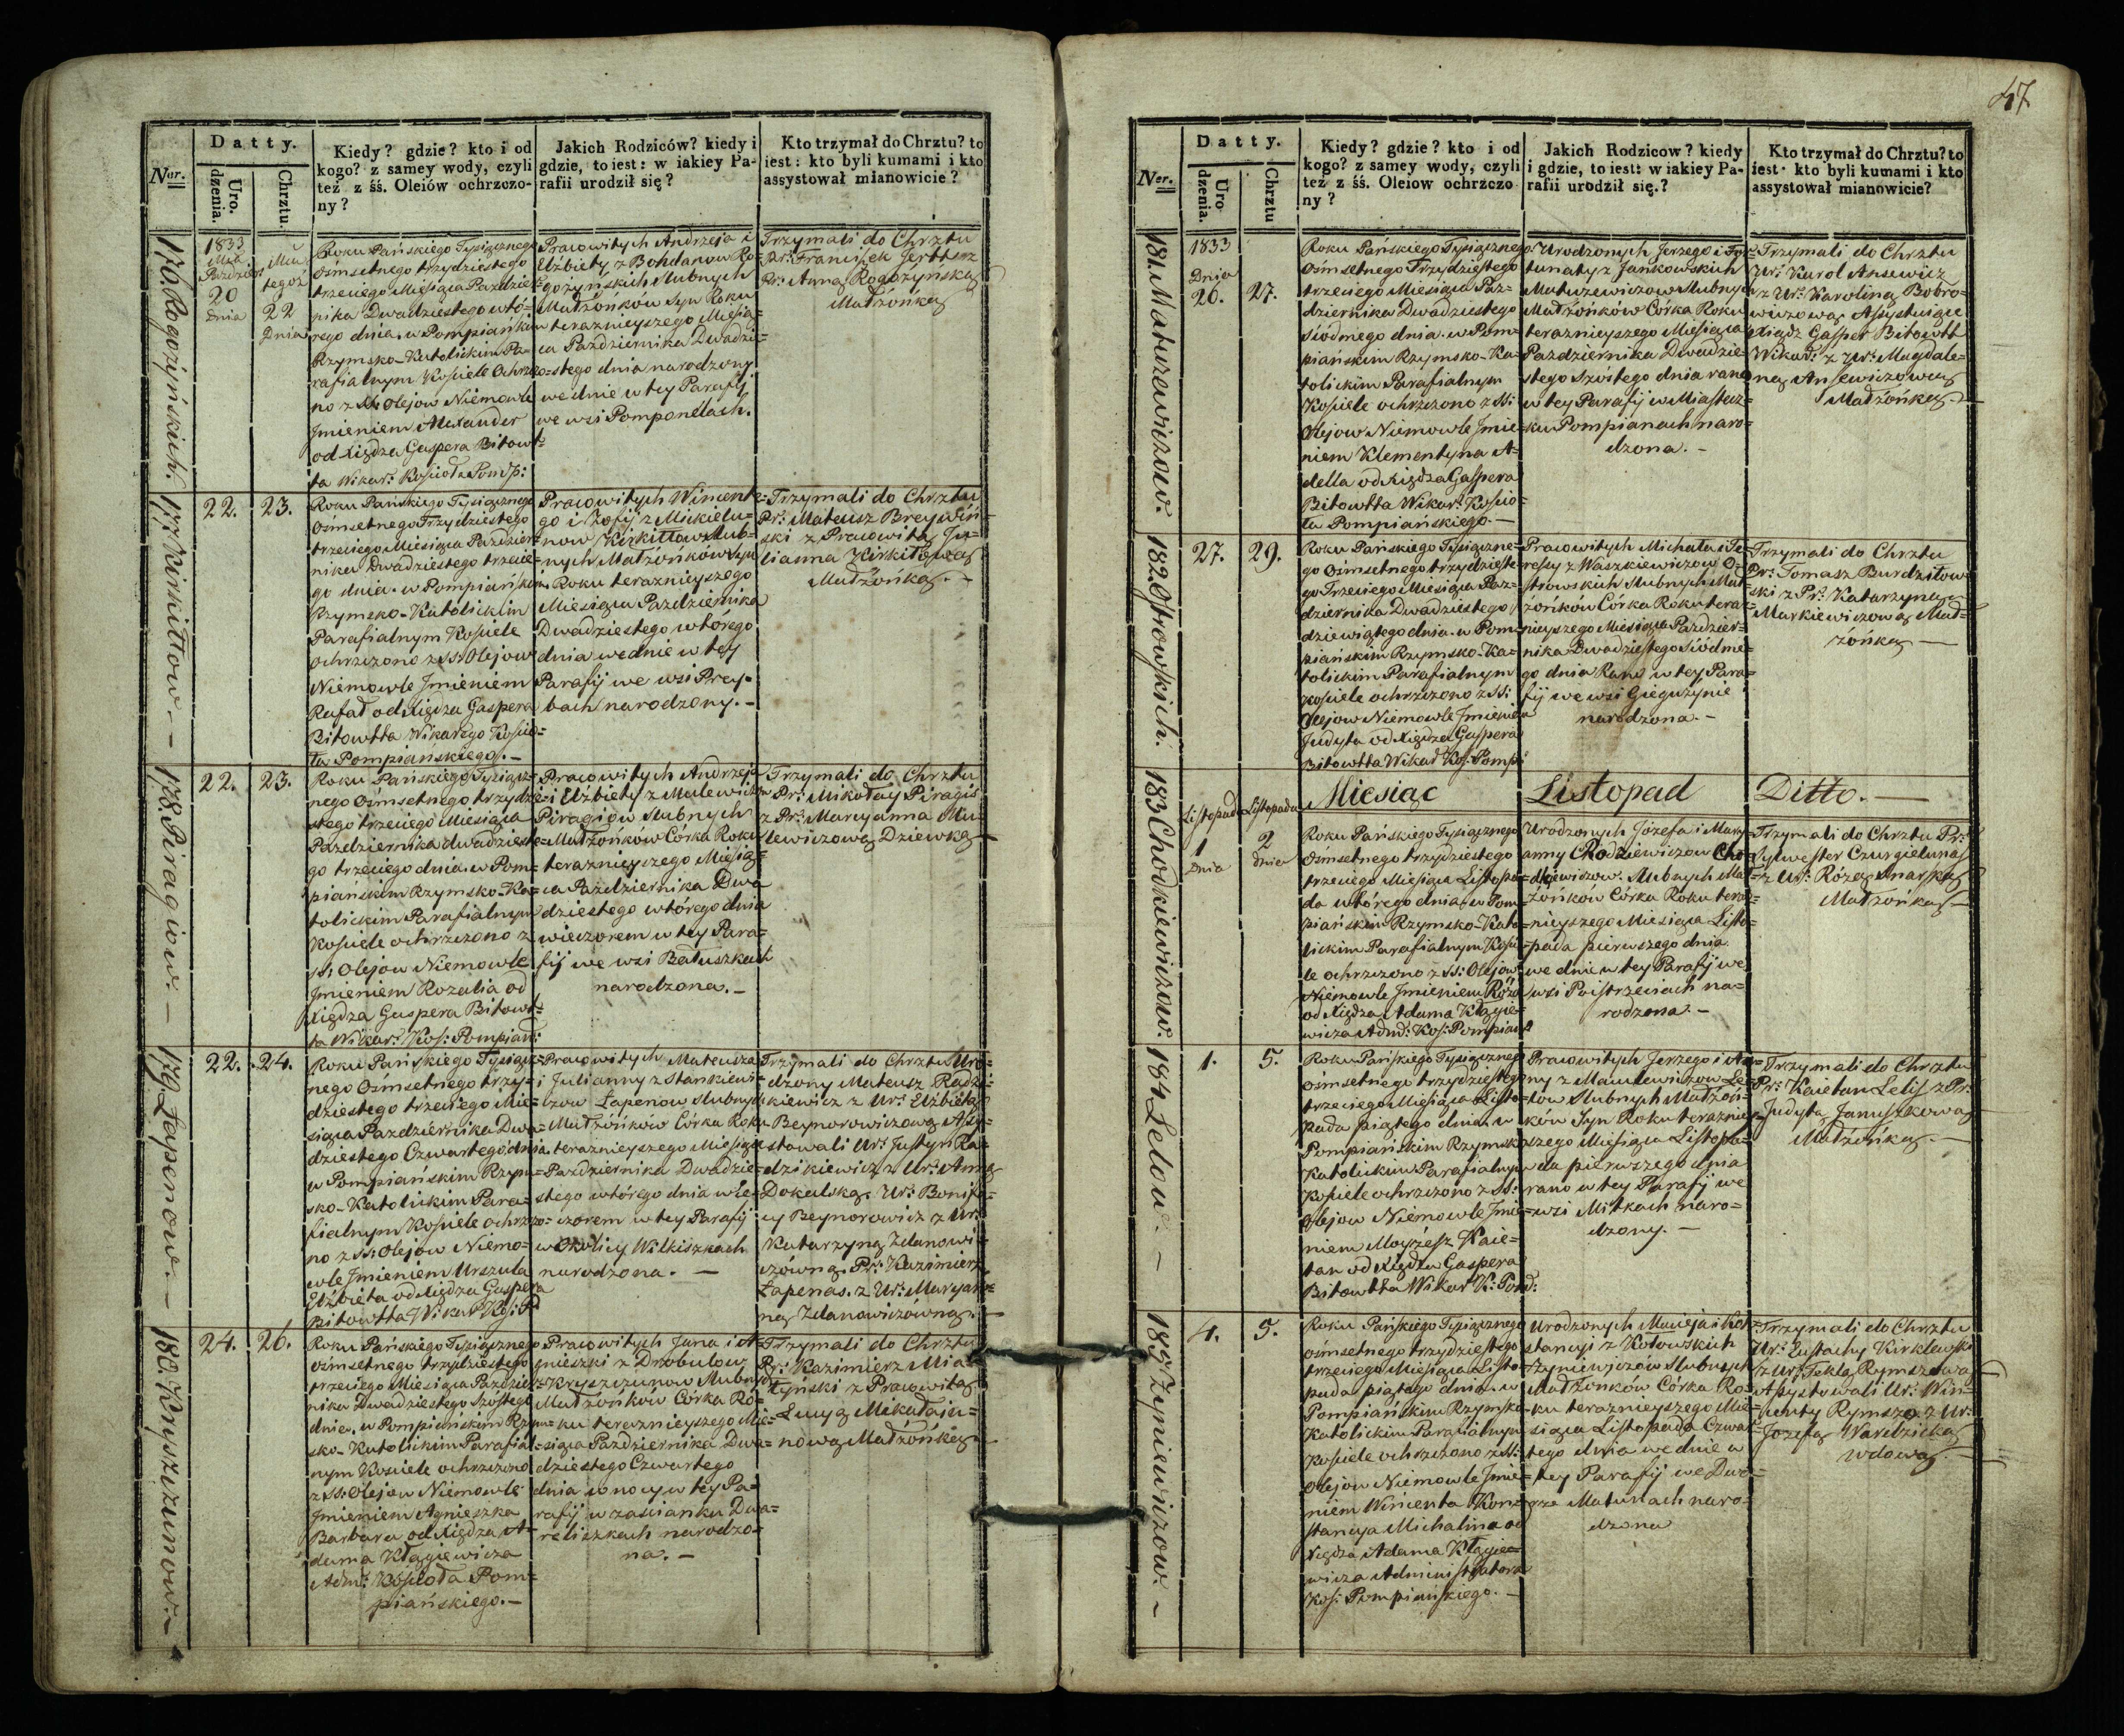 47
Datty.
Ner.
Uro.
dzenia.
Chrztu.
Kiedy? gdzie? kto i od
kogo? z samey wody, czyli
też z śś. Oleiów ochrzczo-
ny?
Jakich Rodziców? kiedy i
gdzie, to iest: w iakiey Pa-
rafii urodził się?
Kto trzymał do Chrztu? to
iest: kto byli kumami i kto
assystował mianowicie?
176. Rogożyńskich.
1833
20
Dnia
tegoż
22
Dnia
Roku Pańskiego Tysiącznego
Ośmsetnego trzydziestego
trzeciego Miesiąca Paździer-
nika Dwadziestego wtó-
rego dnia. w Pompiańskim
Rzymsko-Katolickim Pa-
rafialnym Kościele Ochrzczo-
no z SS. Olejow Niemowle
Jmieniem Alexander
od Xiędza Gaspera Bitowt-
ta Wikar: Kościoła Pomp:
Pracowitych Andrzeja i
Elżbiety z Bohdanow Ro-
gożynskich slubnych
Małżonkow Syn Roku
w teraznieyszego Miesią-
ca Pazdziernika Dwadzie-
stego dnia narodzony
we dnie w tey Parafij
we wsi Pomponelach.
Trzymali do Chrztu
Pr: Franciszek
Pr: Anną Rogożynską
Małżonką
177. Kirkiłłow. -
22. 23.
Roku Pańskiego Tysiącznego
Ośmsetnego Trzydziestego
trzeciego Miesiąca Paździer-
nika Dwadziestego trzecie-
go dnia. w Pompiańskim
Rzymsko-Katolickim
Parafialnym Kościele
ochrzczono z SS Olejow
Niemowle Jmieniem
Rafał od Xiędza Gaspera
Bitowtta Wikarego Kościo-
ła Pompiańskiego. -
Pracowitych Wincente-
go i Zofij z Mickielu-
now Kirkiłłow slub-
nych Małżonków Syn
Roku teraznieyszego
Miesiąca Pazdziernika
Dwadziestego wtorego
dnia we dnie w tey
Parafij we wsi Prey-
bach narodzony. -
Trzymali do Chrztu
Pr: Mateusz Breywiń-
ski z Pracowitą Ju-
lianna Kirkiłową
Małżonką. -
178 Piragiow. -
22. 23.
Roku Pańskiego Tysiącz-
nego Ośmsetnego trzydzie-
stego trzeciego Miesiąca
Pazdziernika dwadzieste-
go trzeciego dnia. w Pom-
piańskim Rzymsko-Ka-
tolickim Parafialnym
Kościele ochrzczono z
SS: Olejow Niemowle
Jmieniem Rozalia od
Xiędza Gaspera Bitowt-
ta Wikar: Kos: Pompiań:
Pracowitych Andrzeja
i Elżbiety z Malewiczow
Piragiow slubnych
Małżonków Córka Roku
teraznieyszego Miesią-
ca Pazdziernika Dwa
dziestego wtórego dnia
wieczorem w tey Para-
fij we wsi Bałuszkach
narodzona. -
Trzymali do Chrztu
Pr: Mikołay Piragis
z Pr: Maryanna Mu-
lewiczową Dziewką
179 Łapenow. -
22. 24.
Roku Pańskiego Tysiącz-
nego Ośmsetnego trzy-
dziestego trzeciego Mie-
siąca Pazdziernika Dwa-
dziestego Czwartego dnia.
w Pompiańskim Rzym-
sko-Katolickim Para-
fialnym Kościele ochrzczo-
no z SS: Olejow Niemo-
wle Jmieniem Urszula
Elżbieta od Xiędza Gaspera
Bitowtta Wikar: Kos: P
Pracowitych Mateusza
i Julianny z Stankiewi-
czow Łapenow slubnych
Małżonków Córka Roku
teraznieyszego Miesiąca
Pazdziernika Dwadzie-
stego wtórego dnia wie-
czorem w tey Parafij
w Okolicy Wilkiszkach
narodzona. -
Trzymali do Chrztu Uro-
dzony Mateusz Radzi-
kiewicz z Ur: Elżbietą
Beynorowiczową Assy-
stowali Ur: Justyn Ra-
dzikiewicz z Ur: Anną
Dokulską. Ur: Bonifa-
cy Beynorowicz z Ur:
Katarzyną Zdanowi-
czówną. Pr: Kazimierz
Łapenas. z Ur: Maryan-
ną Zdanowiczówną. -
180. Kryszczunow. -
24. 26.
Roku Pańskiego Tysiącznego
ośmsetnego trzydziestego
trzeciego Miesiąca Paździer-
nika Dwadziestego Szostego
dnia. w Pompiańskim Rzym-
sko-Katolickim Parafial-
nym Kosciele ochrzczono
z SS: Olejow Niemowle
Jmieniem Agnieszka
Barbara od Xiędza A-
dama Kłągiewicza
Adm: Kościoła Pom-
piańskiego. -
Pracowitych Jana i A-
gnieszki z Drobulow
Kryszczunow slubnych
Małżonków Córka Ro-
ku teraznieyszego Mie-
siąca Pazdziernika Dwa-
dziestego Czwartego
dnia w nocy w tey Pa-
rafij w zascianku Dwa-
reliszkach narodzo-
na. -
Trzymali do Chrztu
Pr: Kazimierz Mia-
łyński z Pracowitą
Łucyą Mikałaju-
nową Małżonką
Datty.
Ner.
Uro
dzenia.
Chrztu
Kiedy? gdzie? kto i od
kogo? z samey wody, czyli
też z śś. Oleiow ochrzczo
ny?
Jakich Rodzicow? kiedy
i gdzie, to iest: w iakiey Pa-
rafii urodził się.?
Kto trzymał do Chrztu? to
iest. kto byli kumami i kto
assystował mianowicie?
181. Matuzewiczow.
1833
Dnia
26. 27.
Roku Pańskiego Tysiącznego
Ośmsetnego Trzydziestego
trzeciego Miesiąca Paz-
dziernika Dwadziestego
Siódmego dnia. w Pom-
piańskim Rzymsko-Ka-
tolickim Parafialnym
Kościele ochrzczono z SS:
Olejow Niemowle Jmie-
niem Klementyna A-
della od Xiędza Gaspera
Bitowtta Wikar: Kościo-
ła Pompiańskiego. -
Urodzonych Jerzego i For-
tunaty z Jankowskich
Matuzewiczow slubnych
Małżónków Córka Roku
teraznieyszego Miesiąca
Pazdziernika Dwadzie-
stego Szóstego dnia rano
w tey Parafij w Miastecz-
ku Pompianach naro-
dzona. -
Trzymali do Chrztu
Ur: Karol Ansewicz
z Ur: Karoliną Bobro-
wiczową Assystujące
Xiądz Gasper Bitowtt
Wikar: z Ur: Magdale-
ną Ansewiczową
Małżonką. -
182 Ostrowskich.
27. 29.
Roku Pańskiego Tysiączne-
go Ośmsetnego trzydzieste-
go Trzeciego Miesiąca Paz-
dziernika Dwadziestego
dziewiątego dnia. w Pom-
piańskim Rzymsko-Ka-
tolickim Parafialnym
Kościele ochrzczono z SS:
Olejow Niemowle Jmieniem
Judyta od Xiędza Gaspera
Bitowtta Wikar Kos: Pomp:
Pracowitych Michała i Te-
ressy z Waszkiewiczow O-
strowskich slubnych Mał-
żonkow Córka Roku tera-
znieyszego Miesiąca Pazdzier-
nika Dwadziestego Siódme-
go dnia Rano w tey Para-
fij we wsi Gieguzynie
narodzona. -
Trzymali do Chrztu
Pr: Tomasz Burdzitow-
ski z Pr: Katarzyną
Markiewiczową Mał-
żónką -
Miesiąc Listopad Ditto. -
183 Chodkiewiczow.
Listopada
1
Dnia
Listopada
2
Dnia
Roku Pańskiego Tysiącznego
Ośmsetnego trzydziestego
trzeciego Miesiąca Listopa-
da wtórego dnia. w Pom-
piańskim Rzymsko-Kato-
lickim Parafialnym Kości-
le ochrzczono z SS: Olejow
Niemowle Jmieniem Róża
od Xiędza Adama Kłągie-
wicza Adm: Kos: Pompiań:
Urodzonych Józefa i Mary-
anny Chodziewiczow Cho-
dkiewiczow. slubnych Ma-
żonków Córka Roku tera-
znieyszego Miesiąca Listo-
pada pierwszego dnia
we dnie w tey Parafij we
wsi Poistrzeciach na-
rodzona. -
Trzymali do Chrztu Pr:
Sylwester Czurgielunas
z Ur: Rozą Snarską
Małżonką. -
184 Lelow. -
1. 5.
Roku Pańskiego Tysiącznego
ośmsetnego trzydziestego
trzeciego Miesiąca Listo-
pada piątego dnia w
Pompiańskim Rzymsko
Katolickim Parafialnym
Kościele ochrzczono z SS:
Olejow Niemowle Jmie-
niem Moyżesz Kaie-
tan od Xiędza Gaspera
Bitowtta Wikar K: Pomp:
Pracowitych Jerzego i An-
ny z Maulewiczow Le-
low slubnych Małżon-
ków Syn Roku terazniey-
szego Miesiąca Listopa-
da pierwszego dnia
rano w tey Parafij we
wsi Mitkach naro-
dzony. -
Trzymali do Chrztu
Pr: Kaietan Lelis z Pr:
Judytą Januszkową
Małżonką. -
185 Żmiewiczow. -
4. 5.
Roku Pańskiego Tysiącznego
ośmsetnego trzydziestego
trzeciego Miesiąca Listo-
pada piątego dnia. w
Pompiańskim Rzymsko
Katolickim Parafialnym
Kościele ochrzczono z SS:
Olejow Niemowle Jmie-
niem Wincenta Kon-
stancya Michalina od
Xiędza Adama Kłągie-
wicza Administratora
Kos: Pompiańskiego. -
Urodzonych Macieja i Kon-
stancyi z Kotowskich
slubnych
Małżonków Córka Ro-
ku teraznieyszego Mie-
siąca Listopada Czwar-
tego dnia we dnie w
tey Parafij we Dwo-
rze Matunach naro-
dzona
Trzymali do Chrztu
Ur: Eustachy Kirklewski
z Ur: Teklą Rymszową
Assystowali Ur: Win-
centy Rymsza z Ur:
Jozefą Naredzicką
wdową. -